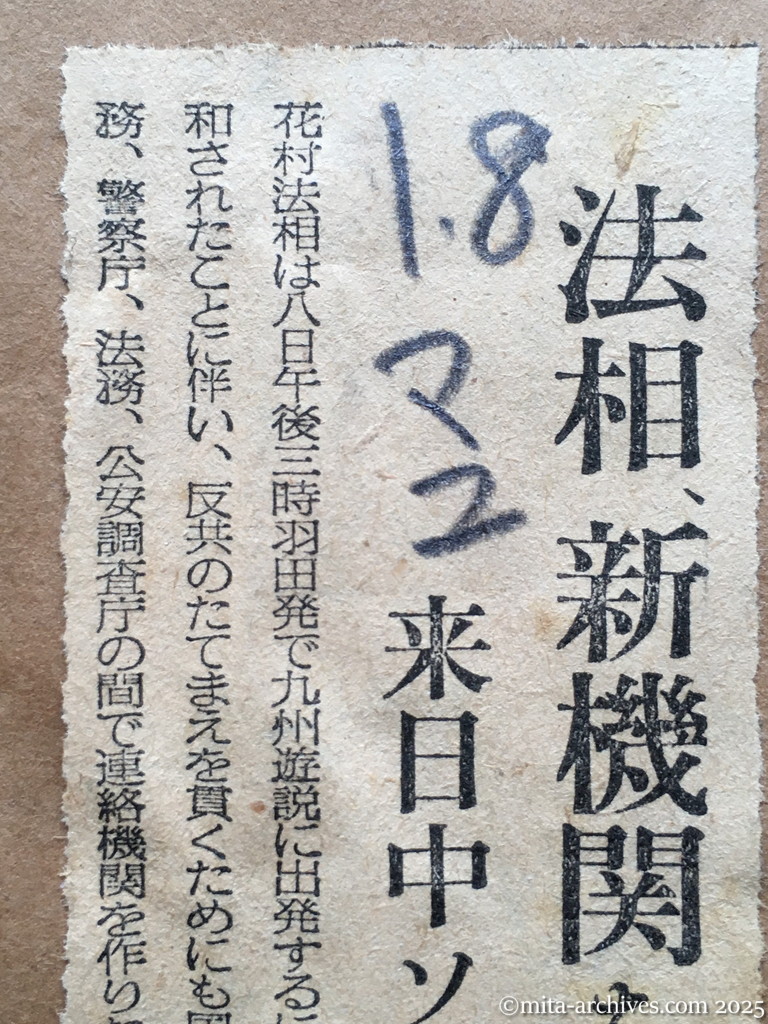 法相、新機関
1.8
マユ
来日中ソ
花村法相は八日午後三時羽田発で九州遊説に出発する
和されたことに伴い、反共のたてまえを貫くためにも
務、警察庁、法務、公安調査庁の間で連絡機関を作り
©mita-archives.com 2025